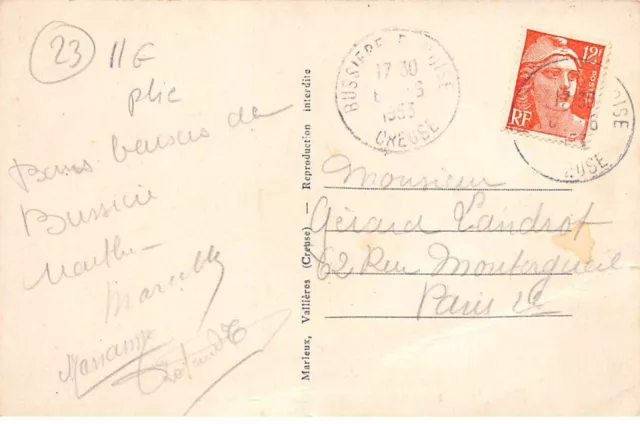 23
11€
plie
Bons baisers de
Bussière
Marthe
Marcelle
Marianne
BUSSIERE DUNOISE
17 30
6
1953
CREUSE
12F
RF
OISE
6
EUSE
Marleux, Vallières (Creuse) — Reproduction interdite
Monsieur
Gérard Landrot
62 Rue Montorgueil
Paris 2e